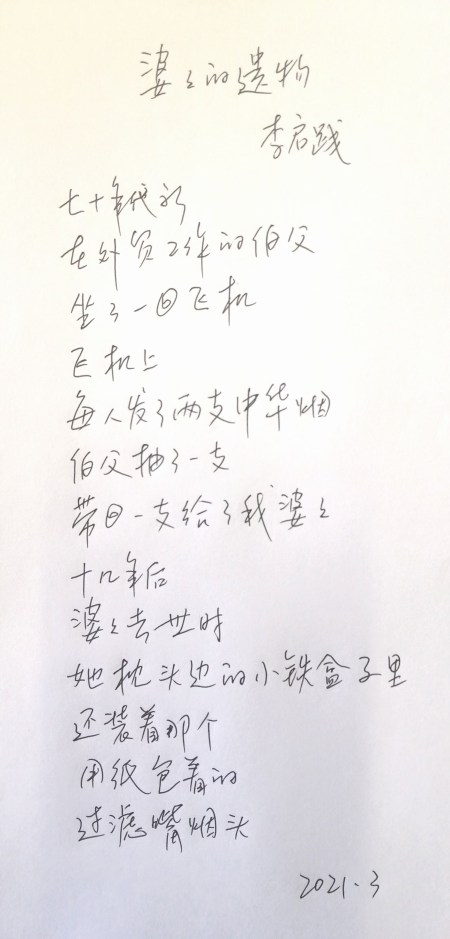 婆々的遗物
李启践
七十年代初
在外贸工作的伯父
坐了一回飞机
飞机上
每人发了两支中华烟
伯父抽了一支
带回一支给了我婆々
十几年后
婆々去世时
她枕头边的小铁盒子里
还装着那个
用纸包着的
过滤嘴烟头
2021.3